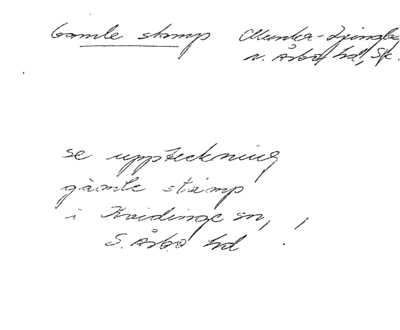 Gamle stamp Munka-Ljungby
N. Åsbo hd, Sk.
se uppteckning
gamle stamp
i Kvidinge sn,
S. Åsbo hd !